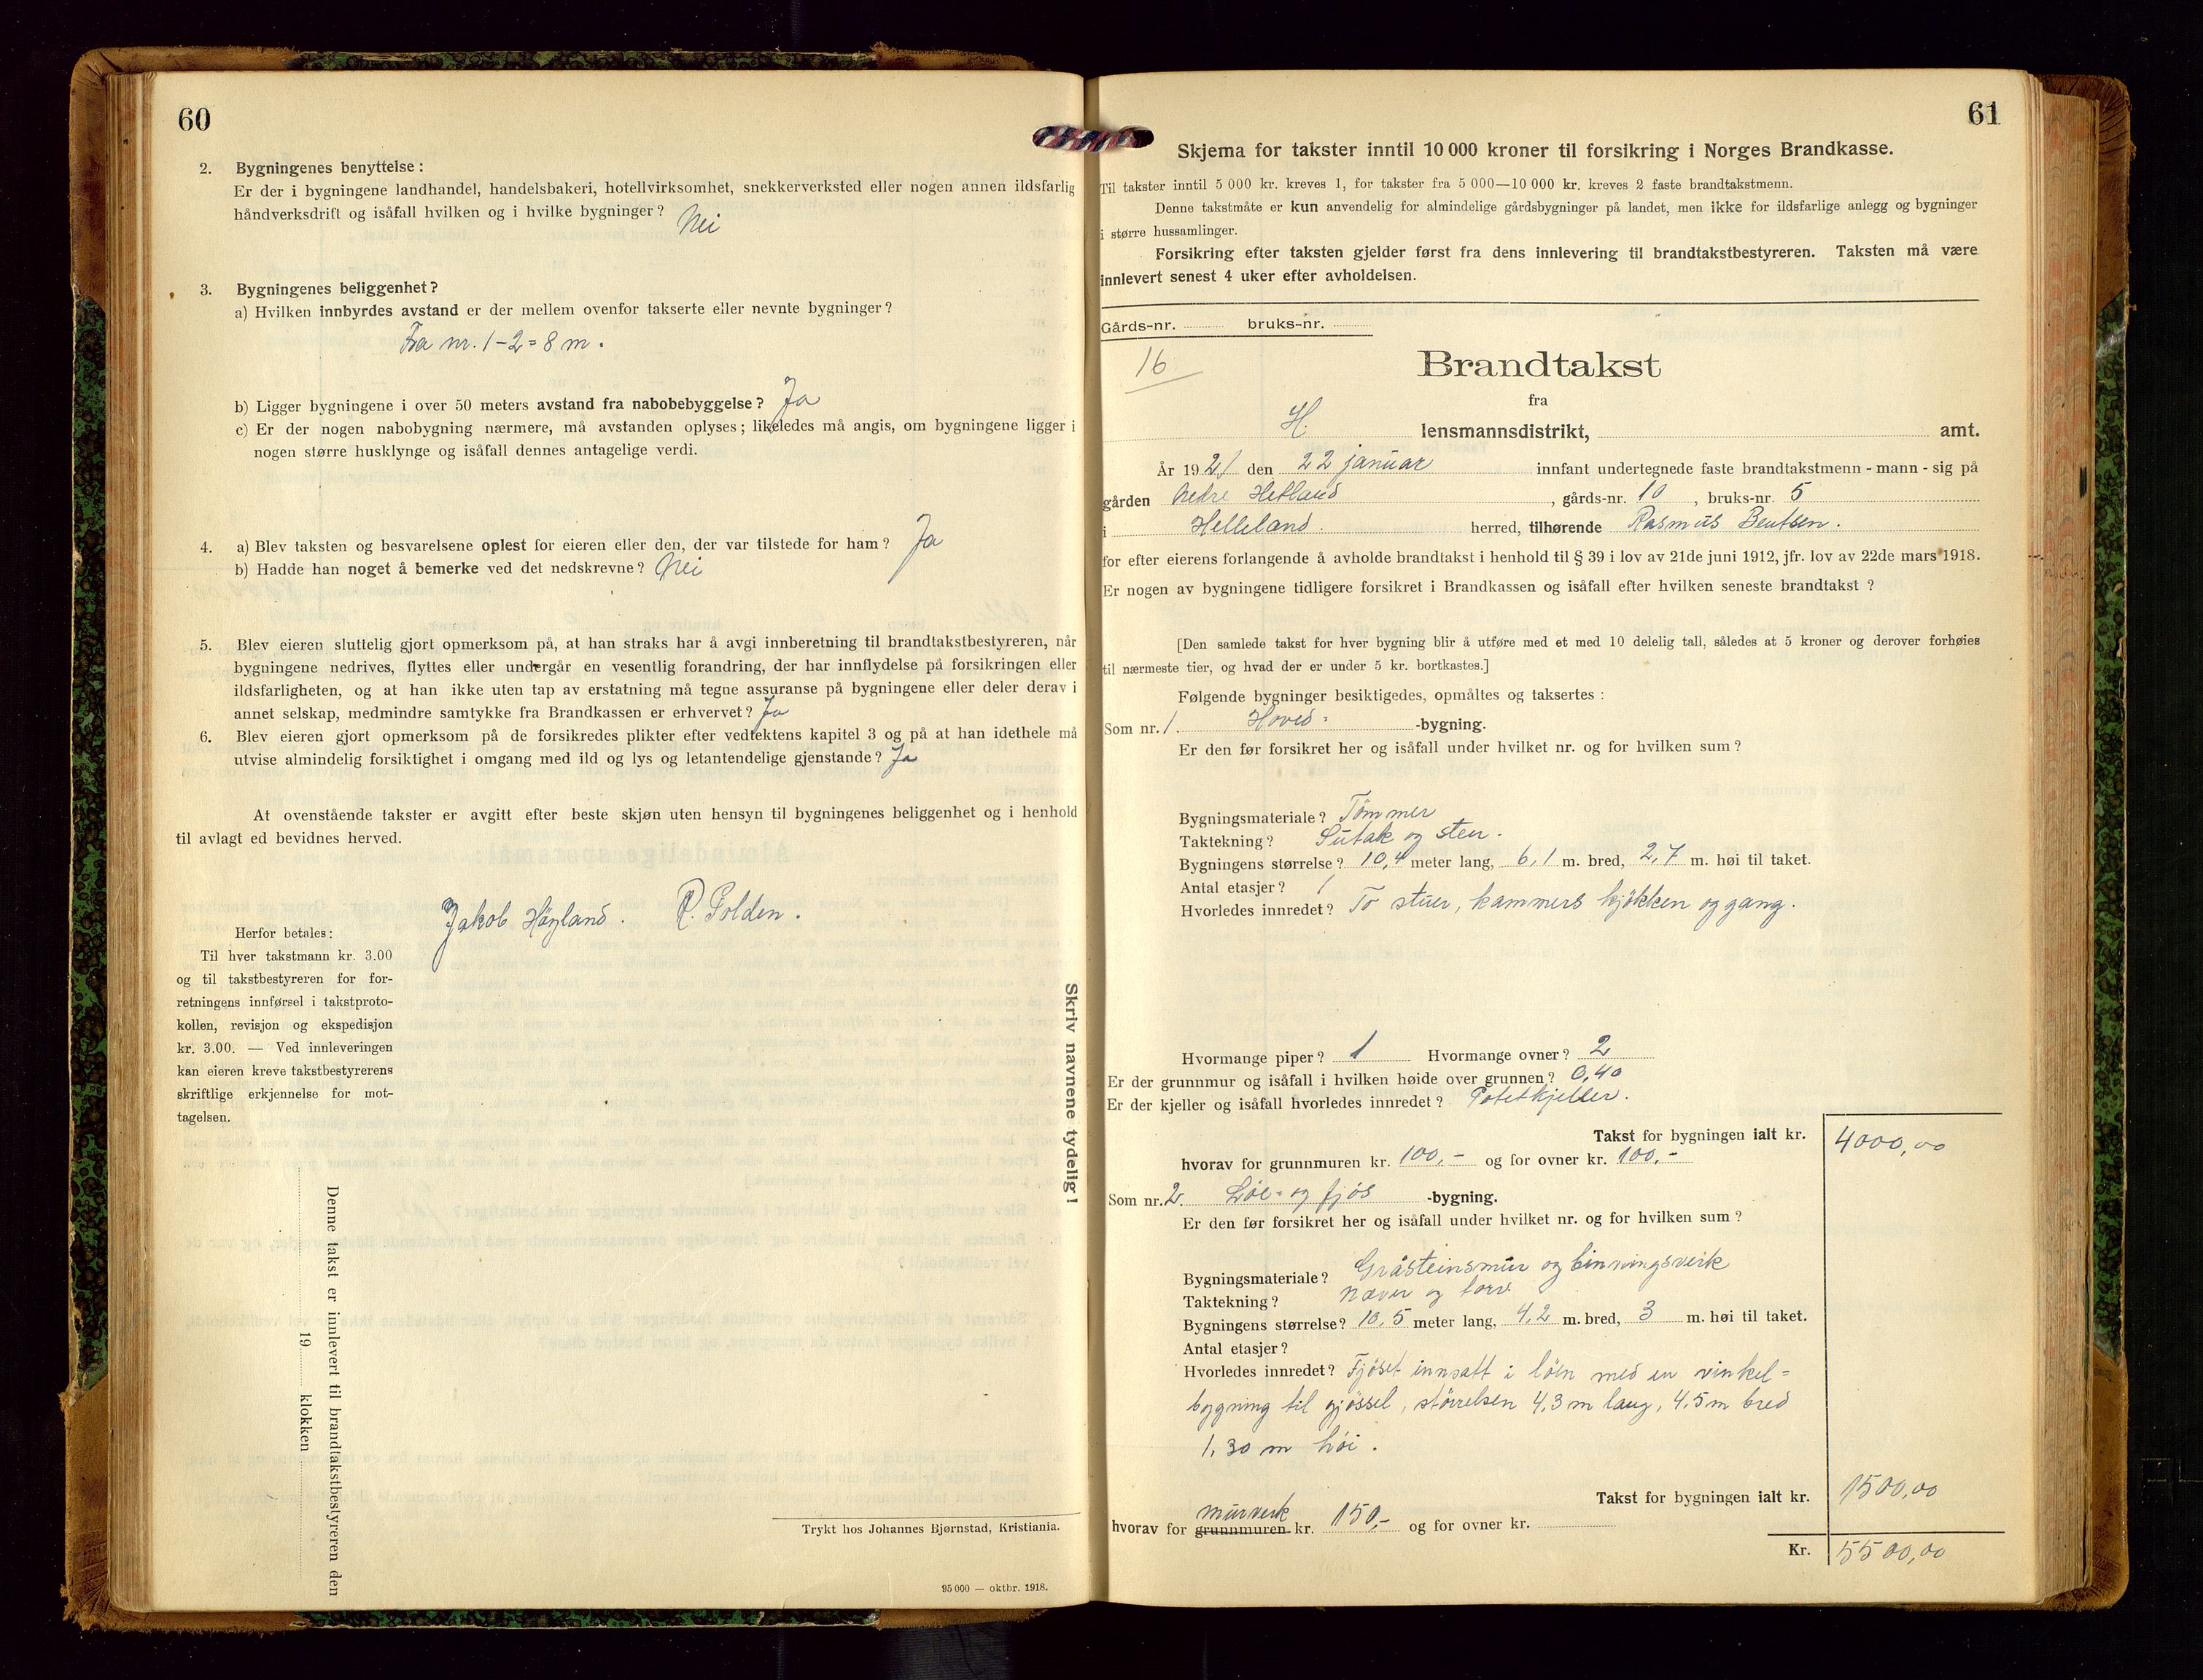 60
2. Bygningenes benyttelse:
Er der i bygningene landhandel, handelsbakeri, hotellvirksomhet, snekkerverksted eller nogen annen ildsfarlig
håndverksdrift og isåfall hvilken og i hvilke bygninger? Nei
3. Bygningenes beliggenhet?
a) Hvilken innbyrdes avstand er der mellem ovenfor takserte eller nevnte bygninger?
Fra nr. 1-2 = 8 m.
b) Ligger bygningene i over 50 meters avstand fra nabobebyggelse? Ja
c) Er der nogen nabobygning nærmere, må avstanden oplyses; likeledes må angis, om bygningene ligger i
nogen større husklynge og isåfall dennes antagelige verdi.
4. a) Blev taksten og besvarelsene oplest for eieren eller den, der var tilstede for ham? Ja
b) Hadde han noget å bemerke ved det nedskrevne? Nei
5. Blev eieren sluttelig gjort opmerksom på, at han straks har å avgi innberetning til brandtakstbestyreren, når
bygningene nedrives, flyttes eller undergår en vesentlig forandring, der har innflydelse på forsikringen eller
ildsfarligheten, og at han ikke uten tap av erstatning må tegne assuranse på bygningene eller deler derav i
annet selskap, medmindre samtykke fra Brandkassen er erhvervet? Ja
6. Blev eieren gjort opmerksom på de forsikredes plikter efter vedtektens kapitel 3 og på at han idethele må
utvise almindelig forsiktighet i omgang med ild og lys og letantendelige gjenstande? Ja
At ovenstående takster er avgitt efter beste skjøn uten hensyn til bygningenes beliggenhet og i henhold
til avlagt ed bevidnes herved.
Jakob Høyland. P. Polden.
Herfor betales:
Til hver takstmann kr. 3.00
og til takstbestyreren for for-
retningens innførsel i takstproto-
kollen, revisjon og ekspedisjon
kr. 3.00. — Ved innleveringen
kan eieren kreve takstbestyrerens
skriftlige erkjennelse for mot-
tagelsen.
Skriv navnene tydelig!
Denne takst er innlevert til brandtakstbestyreren den
19 klokken
Trykt hos Johannes Bjørnstad, Kristiania.
95 000 — oktbr. 1918.
61
Skjema for takster inntil 10 000 kroner til forsikring i Norges Brandkasse.
Til takster inntil 5 000 kr. kreves 1, for takster fra 5 000—10 000 kr. kreves 2 faste brandtakstmenn.
Denne takstmåte er kun anvendelig for almindelige gårdsbygninger på landet, men ikke for ildsfarlige anlegg og bygninger
i større hussamlinger.
Forsikring efter taksten gjelder først fra dens innlevering til brandtakstbestyreren. Taksten må være
innlevert senest 4 uker efter avholdelsen.
Gårds-nr. bruks-nr.
16
Brandtakst
fra
H. lensmannsdistrikt, amt.
År 1921 den 22 januar innfant undertegnede faste brandtakstmenn - mann - sig på
gården Nedre Hetland, gårds-nr. 10, bruks-nr. 5
i Helleland. herred, tilhørende Rasmus Bentsen.
for efter eierens forlangende å avholde brandtakst i henhold til § 39 i lov av 21de juni 1912, jfr. lov av 22de mars 1918.
Er nogen av bygningene tidligere forsikret i Brandkassen og isåfall efter hvilken seneste brandtakst?
[Den samlede takst for hver bygning blir å utføre med et med 10 delelig tall, således at 5 kroner og derover forhøies
til nærmeste tier, og hvad der er under 5 kr. bortkastes.]
Følgende bygninger besiktigedes, opmåltes og taksertes:
Som nr. 1. Hoved- -bygning.
Er den før forsikret her og isåfall under hvilket nr. og for hvilken sum?
Bygningsmateriale? Tømmer
Taktekning? Sutak og sten.
Bygningens størrelse? 10,4 meter lang, 6,1 m. bred, 2,7 m. høi til taket.
Antal etasjer? 1
Hvorledes innredet? To stuer, kammers kjøkken og gang.
Hvormange piper? 1 Hvormange ovner? 2
Er der grunnmur og isåfall i hvilken høide over grunnen? 0,40
Er der kjeller og isåfall hvorledes innredet? Potetkjeller.
Takst for bygningen ialt kr. 4000,00
hvorav for grunnmuren kr. 100,- og for ovner kr. 100,-
Som nr. 2. Løe- og fjøs -bygning.
Er den før forsikret her og isåfall under hvilket nr. og for hvilken sum?
Bygningsmateriale? Gråsteinsmur og binningsverk
Taktekning? Næver og torv.
Bygningens størrelse? 10,5 meter lang, 4,2 m. bred, 3 m. høi til taket.
Antal etasjer?
Hvorledes innredet? Fjøset innsatt i løen med en vinkel-
bygning til gjøssel, størrelsen 4,3 m lang, 4,5 m bred
1,30 m høi.
Takst for bygningen ialt kr. 1500,00
murverk
hvorav for grunnmuren kr. 150,- og for ovner kr.
Kr. 5500,00